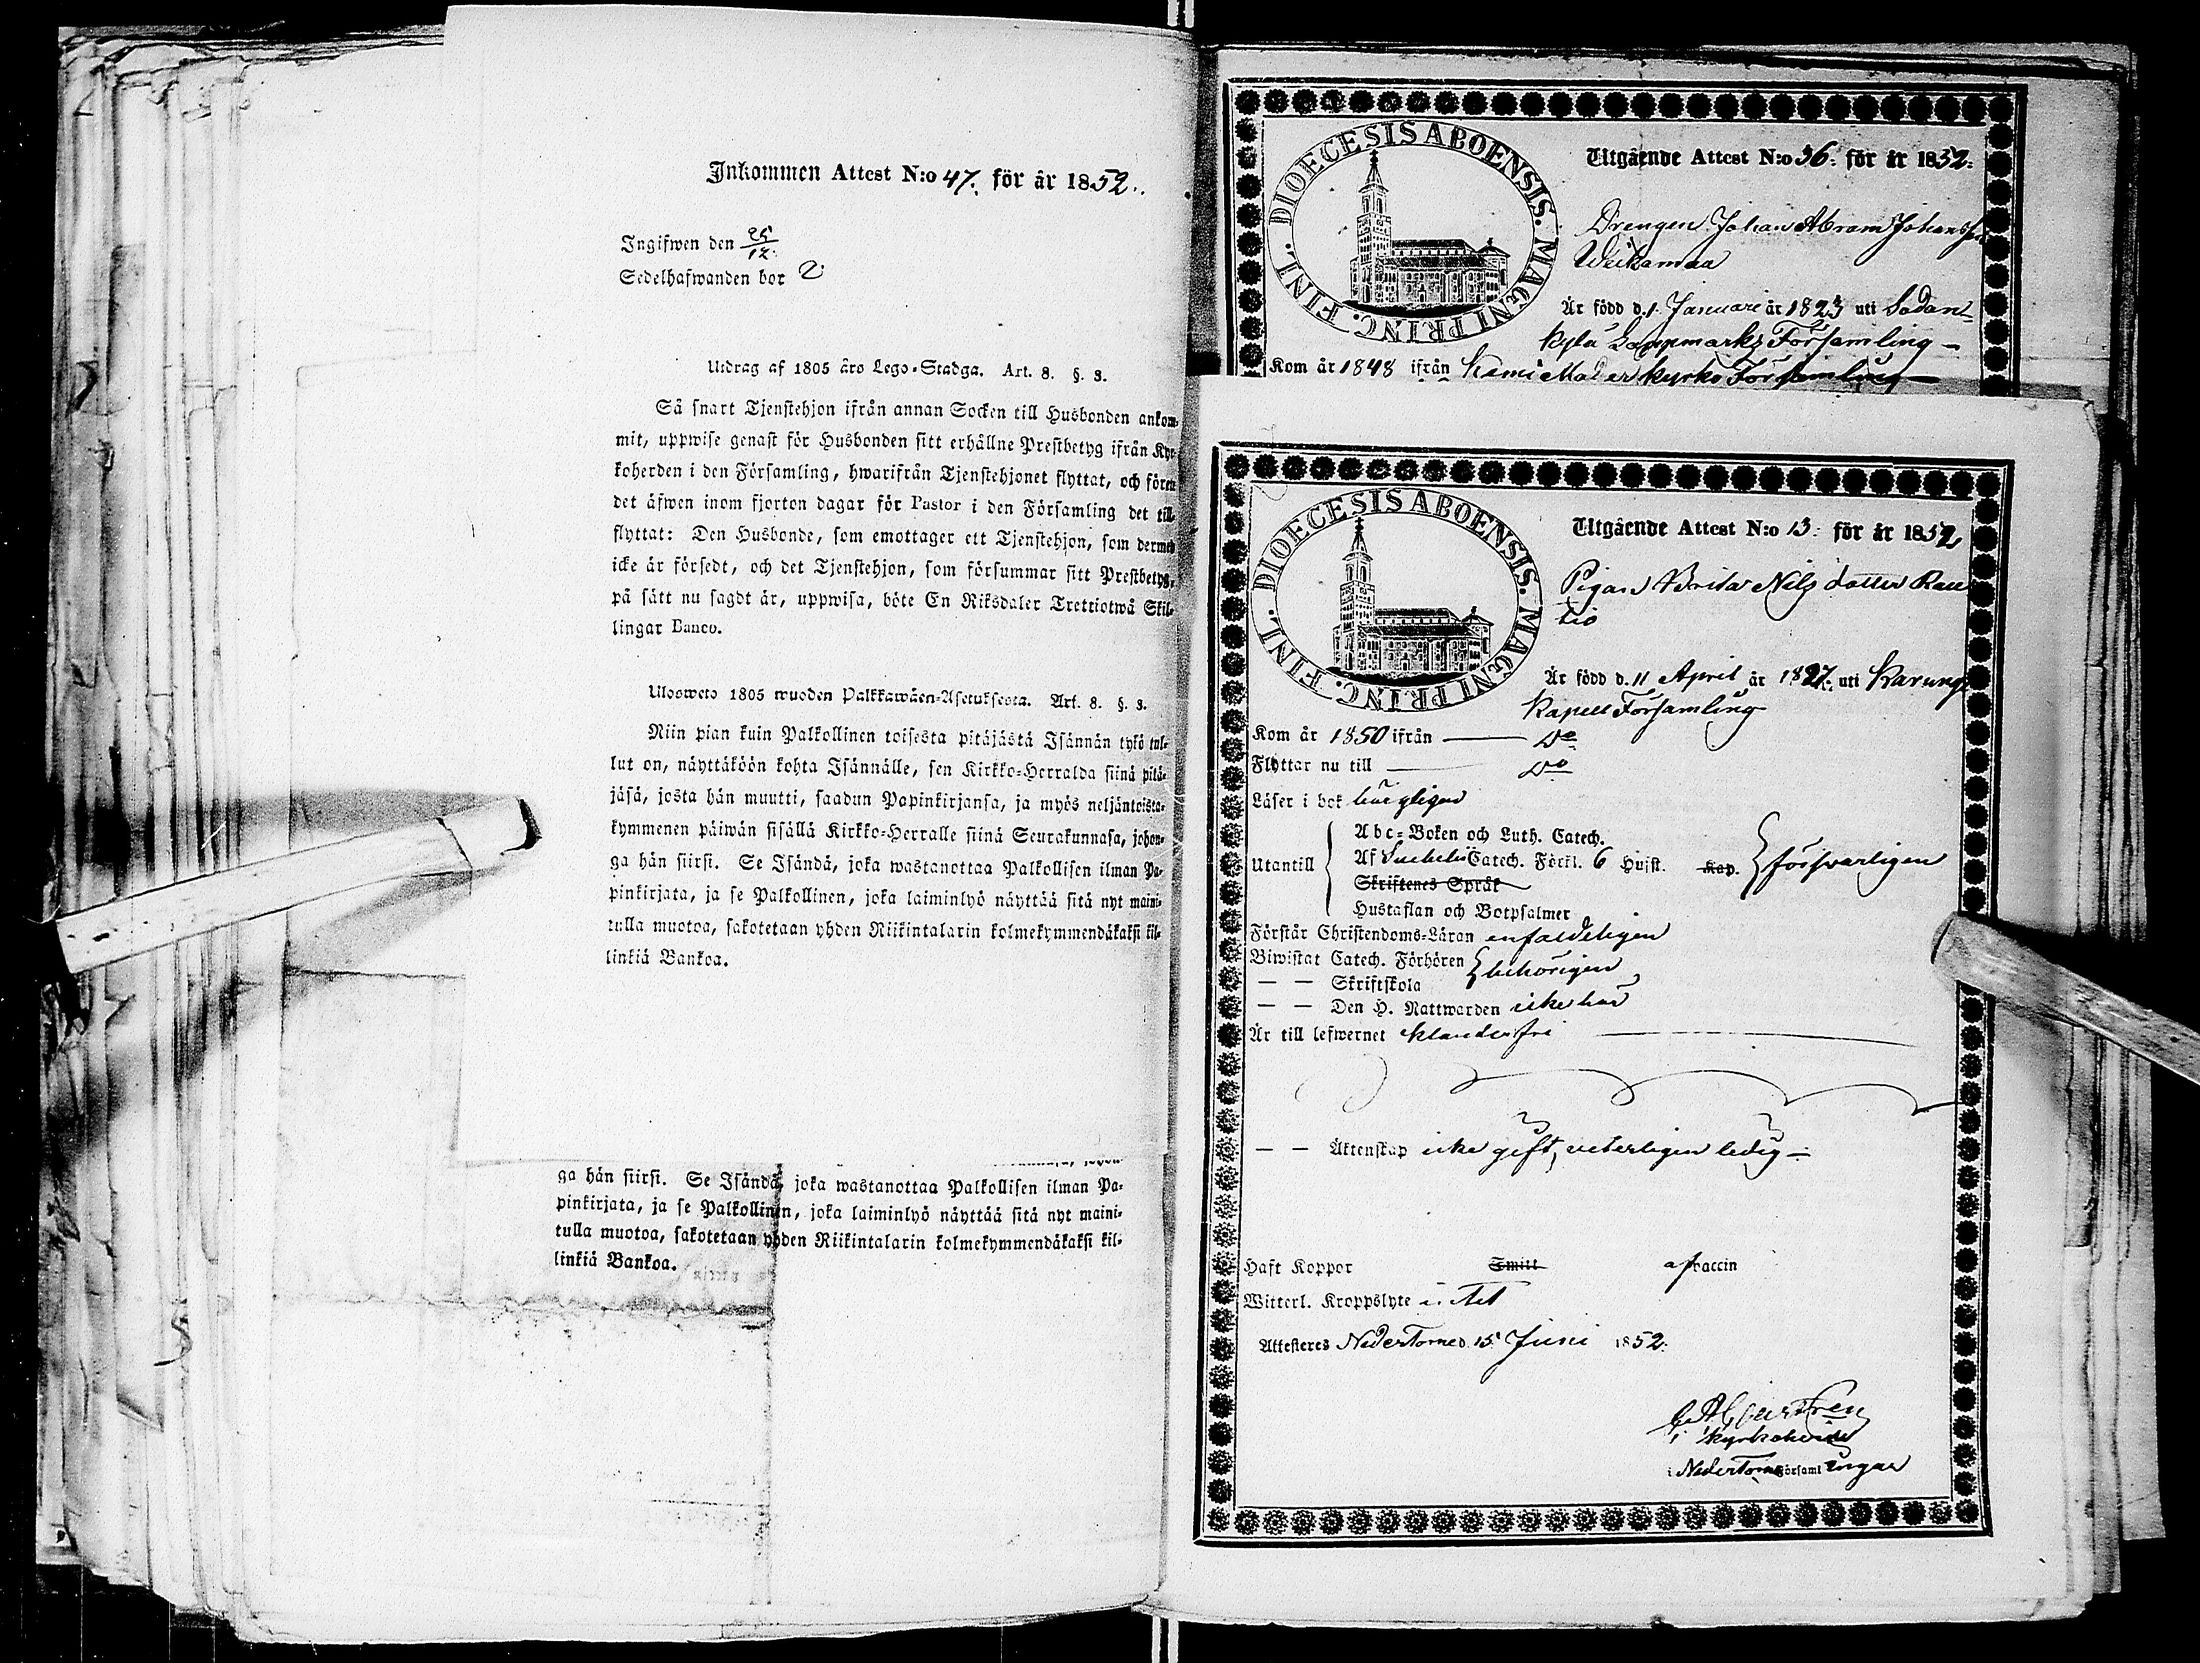 Inkommen Attest N:o 47. för år 1852.
Ingifwen den 25/12.
Sedelhafwanden bor
Utdrag af 1805 års Lego-Stadga. Art. 8. §. 3.
Så snart Tjenstehjon ifrån annan Socken till Husbonden ankom-
mit, uppwise genast för Husbonden sitt erhållne Prestbetyg ifrån Kyr-
koherden i den Församling, hwarifrån Tjenstehjonet flyttat, och förete
det äfwen inom fjorton dagar för Pastor i den Församling det till-
flyttat: Den Husbonde, som emottager ett Tjenstehjon, som dermed
icke är försedt, och det Tjenstehjon, som försummar sitt Prestbetyg,
på sätt nu sagdt är, uppwisa, böte En Riksdaler Trettiotwå Skil-
lingar Banco.
Ulosweto 1805 wuoden Palkkawäen-Asetuksesta. Art. 8. §. 3.
Niin pian kuin Palkollinen toisesta pitäjästä Isännän tykö tul-
lut on, näyttäköön kohta Isännälle, sen Kirkko-Herralda siinä pitä-
jäsä, josta hän muutti, saadun Papinkirjansa, ja myös neljäntoista-
kymmenen päiwän sisällä Kirkko-Herralle siinä Seurakunnasa, johon-
ga hän siirsi. Se Isändä, joka wastanottaa Palkollisen ilman Pa-
pinkirjata, ja se Palkollinen, joka laiminlyö näyttää sitä nyt maini-
tulla muotoa, sakotetaan yhden Riikintalarin kolmekymmendäkaksi kil-
linkiä Bankoa.
ga hän siirsi. Se Isändä, joka wastanottaa Palkollisen ilman Pa-
pinkirjata, ja se Palkollinen, joka laiminlyö näyttää sitä nyt maini-
tulla muotoa, sakotetaan yhden Riikintalarin kolmekymmendäkaksi kil-
linkiä Bankoa.
DIOECESIS ABOENSIS. MAGNI PRINC. FINL.
Utgående Attest N:o 36. för år 1852.
Drengen Johan Abram Johansson
Weikamaa
Är född d. 1. Januari år 1823 uti Sodan-
kylä Lappmarks Församling –
Kom år 1848 ifrån Kemi Moderkyrko Församling –
DIOECESIS ABOENSIS. MAGNI PRINC. FINL.
Utgående Attest N:o 13. för år 1852
Pigan Brita Nils dotter Rau
tio
Är född d. 11 April år 1827. uti Karungi
Kapell Församling
Kom år 1850 ifrån — Do
Flyttar nu till — Do
Läser i bok
Utantill
Abc-Boken och Luth. Catech.
Af Svebelii Catech. Förkl. 6 Hufst. Kap. försvarligen
Skriftenes Språk
Hustaflan och Botpsalmer
Förstår Christendoms-Läran enfaldeligen
Biwistat Catech. Förhören behörigen
— — Skriftskola
— — Den H. Nattwarden icke här
Är till lefwernet klanderfri
— — Äktenskap icke gift, veterligen ledig –
Haft Koppor Smitt af vaccin
Witterl. Kroppslyte intet
Attesteres NederTorneå 15 Juni 1852.
Kyrkoherde
i NederTorneå Församlingar